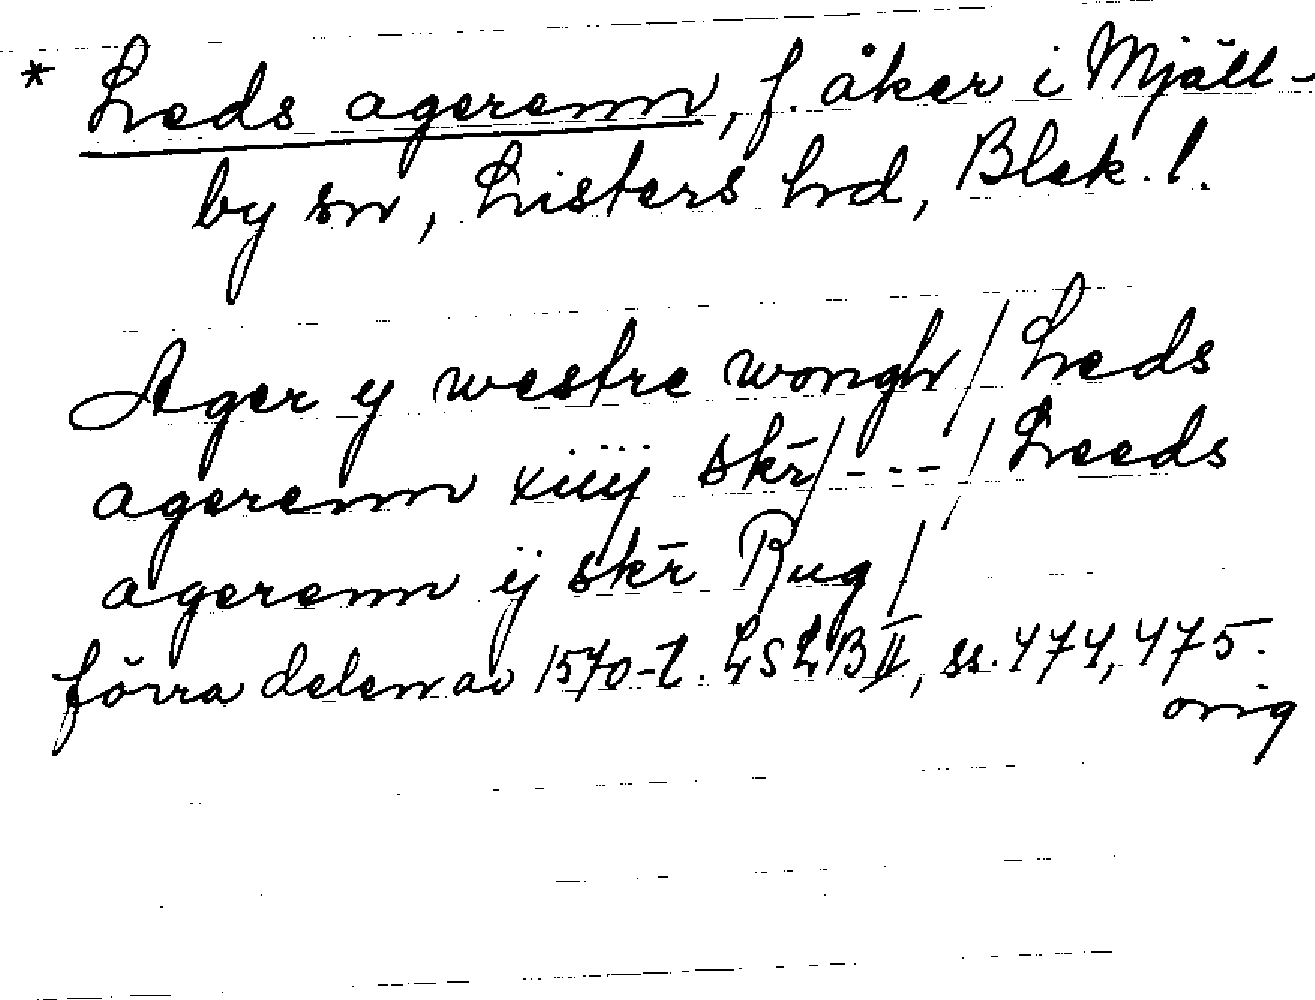 * Leds agerenn, f. åker i Mjäll-
by sn, Listers hd, Blek. l.
Ager y westre wongh/Leds
agerenn xiiij skr̄/---/Leeds
agerenn ij skr̄ Rug/
förra delen av 1570-t. LSLB II, ss. 474, 475.
orig